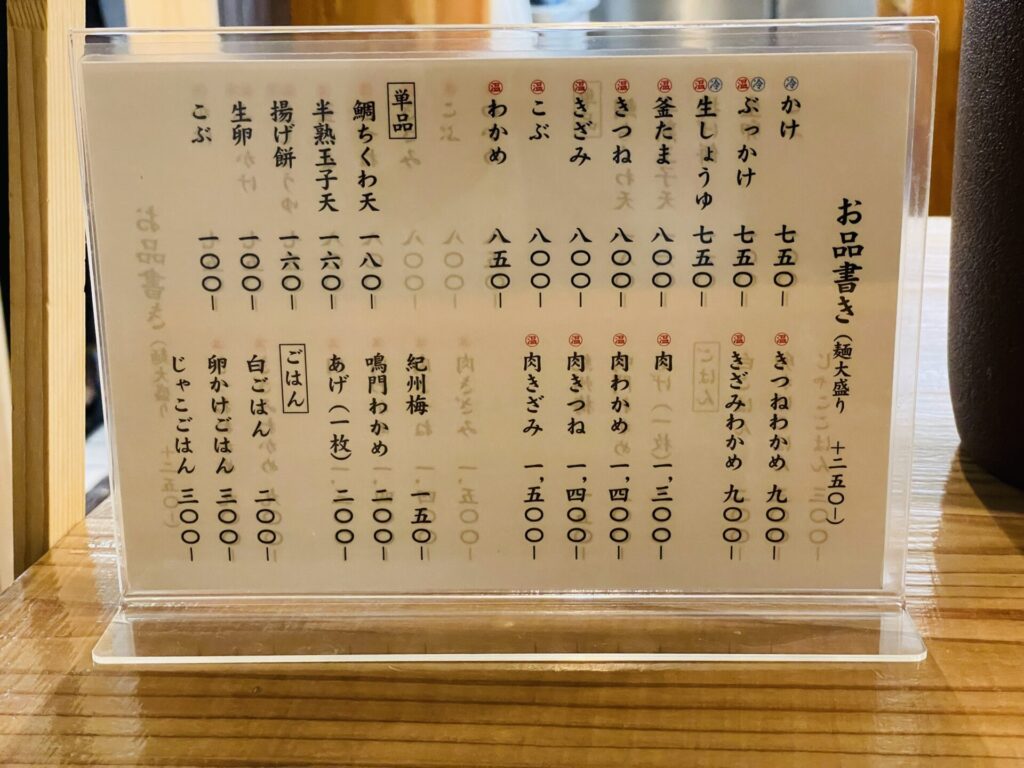 お品書き（麺大盛り ＋二五〇ー）
冷 かけ 七五〇ー
温冷 ぶっかけ 七五〇ー
温冷 生しょうゆ 七五〇ー
温 釜たま 八〇〇ー
温 きつね 八〇〇ー
温 きざみ 八〇〇ー
温 こぶ 八〇〇ー
温 わかめ 八五〇ー
単品
鯛ちくわ天 一八〇ー
半熟玉子天 一六〇ー
揚げ餅 一六〇ー
生卵 一〇〇ー
こぶ 一〇〇ー
温 きつねわかめ 九〇〇ー
温 きざみわかめ 九〇〇ー
温 肉 一,三〇〇ー
温 肉わかめ 一,四〇〇ー
温 肉きつね 一,四〇〇ー
温 肉きざみ 一,五〇〇ー
紀州梅 一五〇ー
鳴門わかめ 二〇〇ー
あげ（一枚） 二〇〇ー
ごはん
白ごはん 二〇〇ー
卵かけごはん 三〇〇ー
じゃこごはん 三〇〇ー